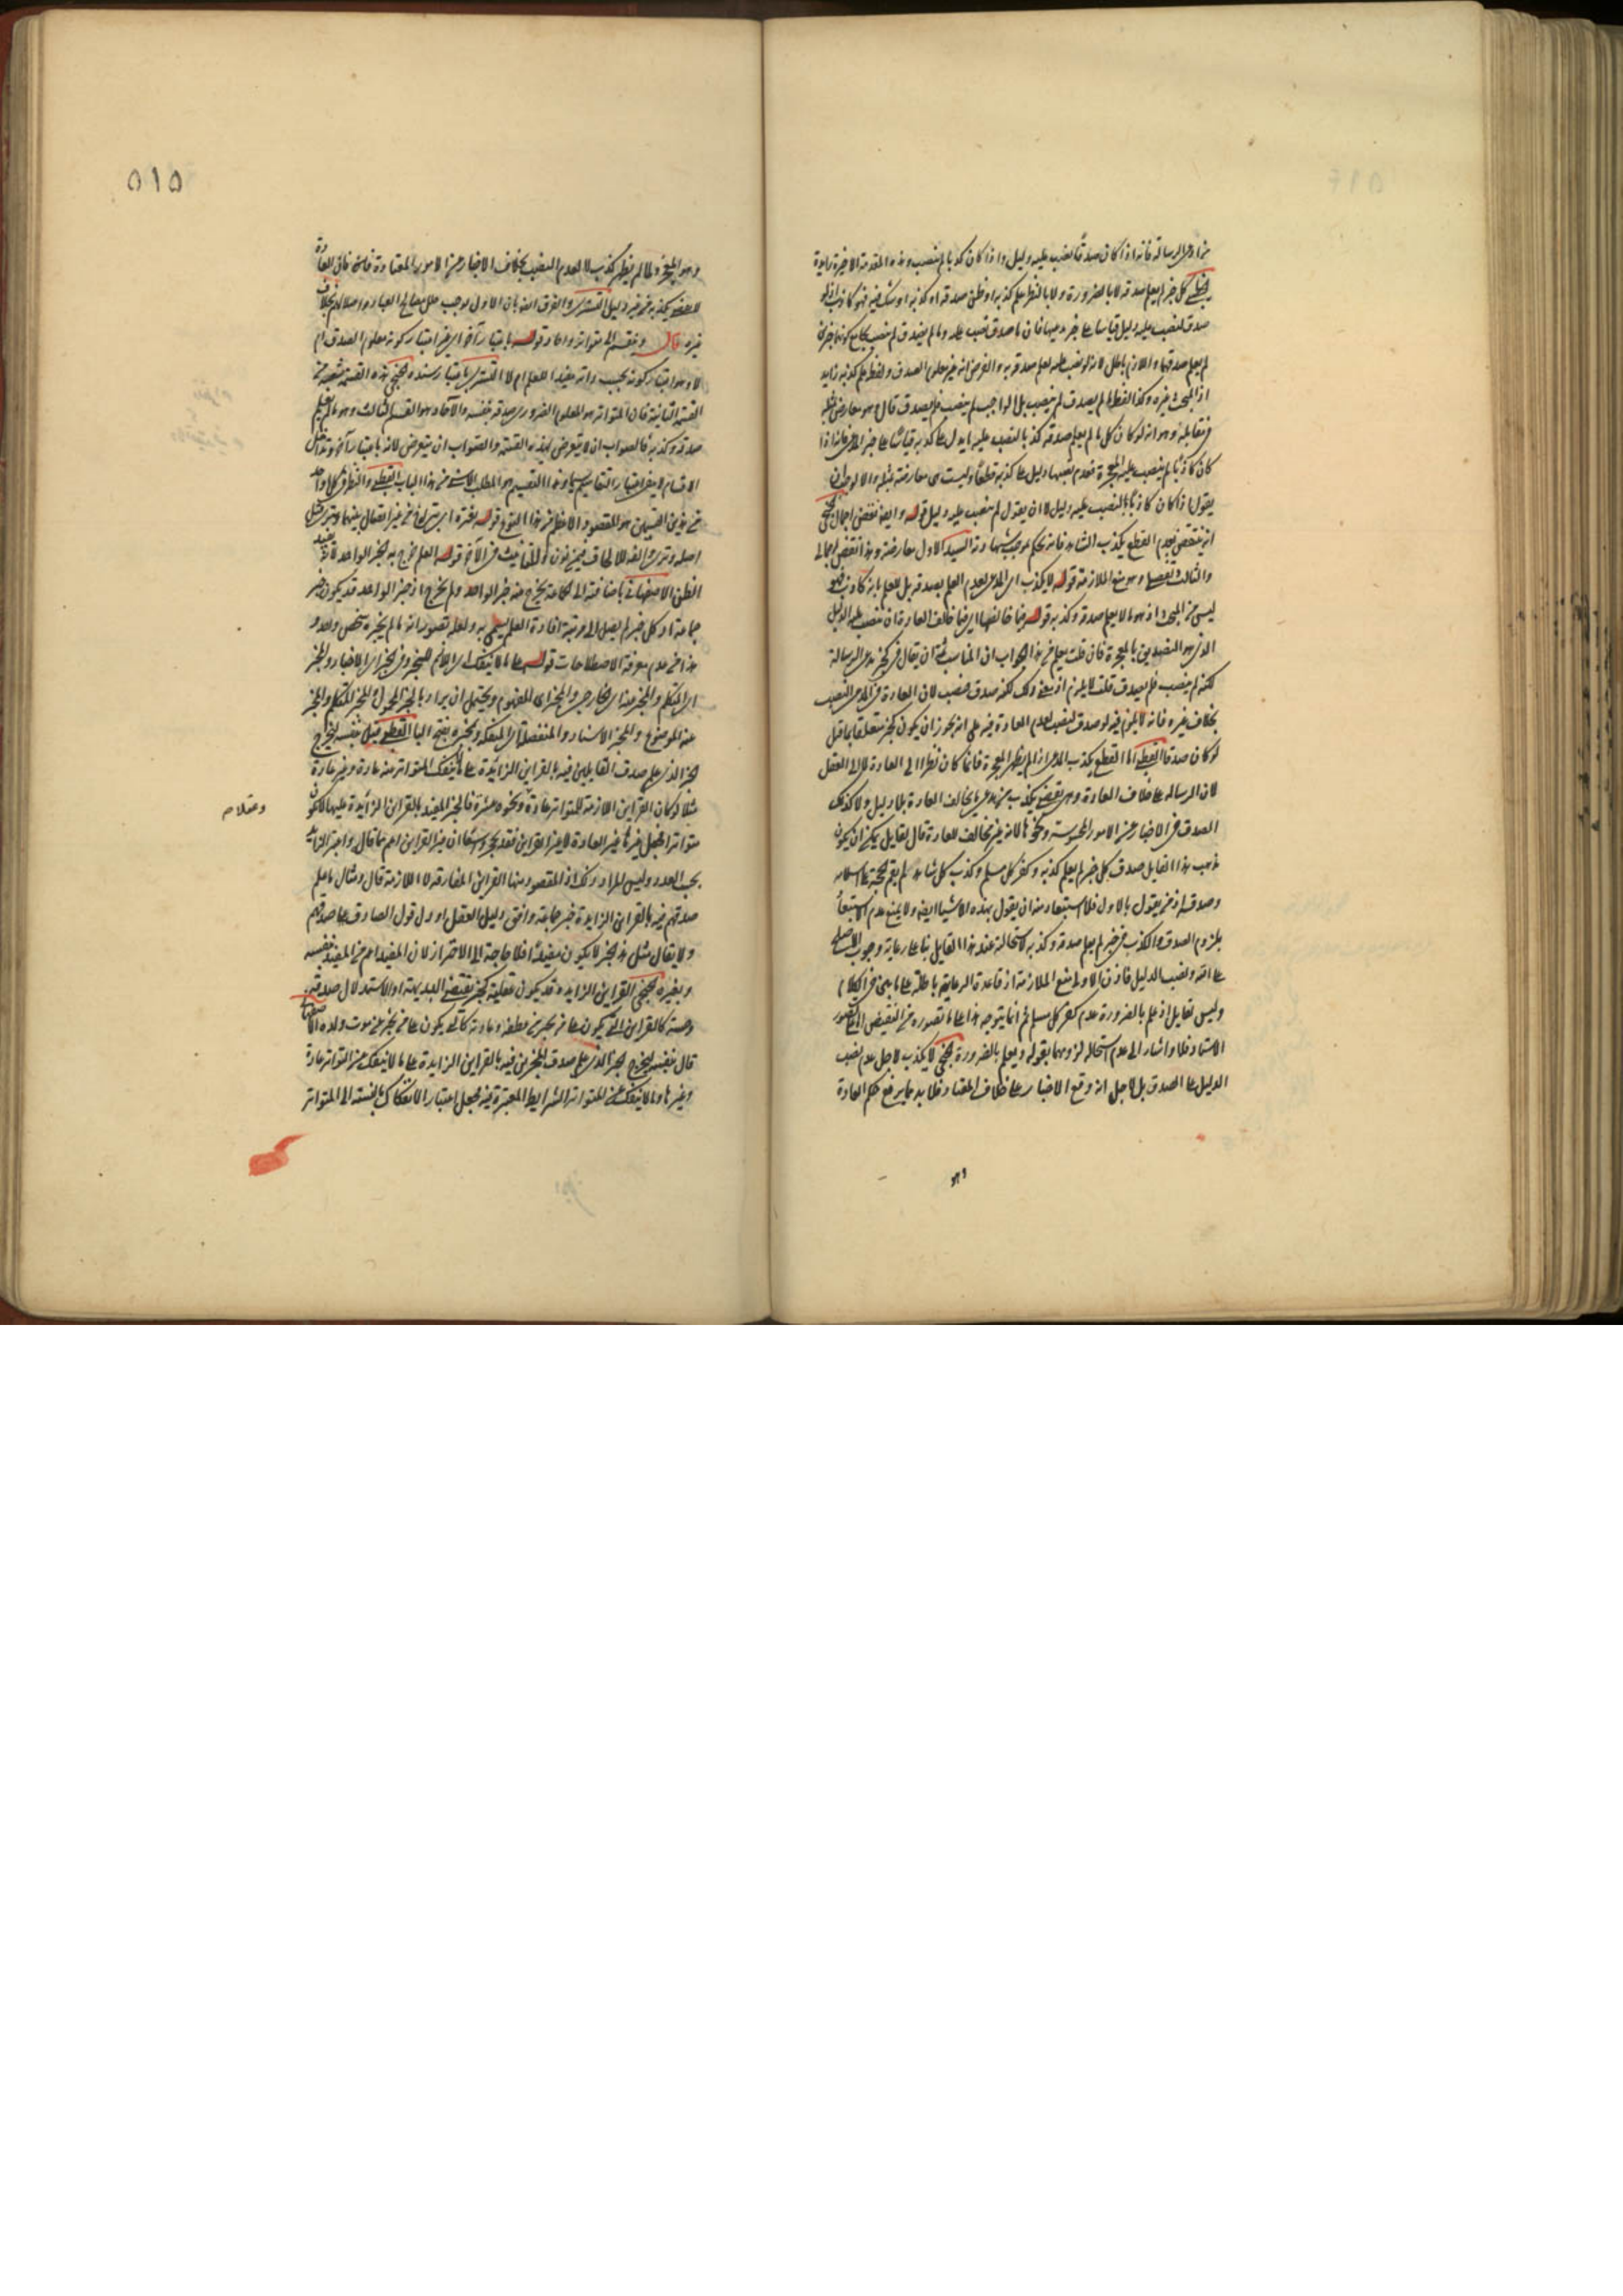 من ادعى الرسالة فانه اذا كان صدقا نصب عليه دليل واذا كان كذبا لم ينصب وهذه المقدمة الاخيرة زايدة
كل خبر لم يعلم صدقه لا بالضرورة ولا بالنظر علم كذبه او ظن صدقه او كذبه او شك فيه فهو كاذب اذ لو
صدق لنصب عليه دليل قياسا على خبر مدعيها فان ما صدق نصب عليه وما لم يصدق لم ينصب بجامع كونهما خبرين
لم يعلم صدقهما واللازم باطل لانه لو نصب عليه لعلم صدقه به والفرض انه غير معلوم الصدق ولفظ علم كذبه زايد
اذ المبحث غيره وكذا لفظ ما لم يصدق لم ينصب بل الواجب لم ينصب فلم يصدق قال وهو معارض بمثله
في مقابله وهو انه لو كان كل ما لم يعلم صدقه كذبا لنصب عليه ما يدل على كذبه قياسا على خبر المدعي فانه اذا
كان كاذبا لم ينصب عليه المعجزة فعدم نصبها دليل على كذبه قطعا وليست هي معارضة بمثله والا لوجب ان
يقول اذا كان كاذبا لنصب عليه دليل لا ان يقول لم ينصب عليه دليل قوله وايضا نقض اجمالي
انه ينتقض بعدم القطع بكذب الشاهد فانه يحكم بموجب شهادته السيد الاول معارضة وهذا نقض اجمالي
والثالث تفصيلي وهو منع الملازمة قوله لا يكذب اي المدعي لعدم العلم بصدقه بل للعلم بانه كاذب فهو
ليس من المبحث اذ هو ما لا يعلم صدقه وكذبه قوله فيما خالفها اي فيما خالف العادة ان تنصب عليه الدليل
الذي هو التصديق بالمعجزة فان قلت يعلم من هذا الجواب ان المناسب ثمة ان يقال في خبر مدعي الرسالة
لكنه لم ينصب فلم يصدق قلت لا يلزم اذ معنى ذلك لكنه صدق فنصب لان العادة في المدعي النصب
بخلاف غيره فانه لا يلزم فيه لو صدق لنصب لعدم العادة فيه على انه يجوز ان يكون خبر متعلقا بما قبل
لو كان صدقا القطبي اما القطع بكذب المدعي اذا لم يظهر المعجزة فانما كان نظرا الى العادة لا الى العقل
لان الرسالة على خلاف العادة وهي تقضي بكذب من يدعي ما يخالف العادة بلا دليل ولا كذلك
الصدق في الاخبار عن الامور المحسوسة ونحوها لانه غير مخالف للعادة قال لقايل يمكن ان يكون
مذهب هذا القايل صدق كل خبر لم يعلم كذبه وكفر كل مسلم وكذب كل شاهد لم يقم حجة على اسلامه
وصدقه اذ من يقول بالاول فلا استبعاد منه ان يقول بهذه الاشياء ايضا ولا يمنع عدم استبعاد
يلزم الصدق والكذب في خبر لم يعلم صدقه وكذبه لاستحالة عند هذا القايل بناء على رعاية وجوب الاصلح
على الله ونصب الدليل فاذن الاولى منع الملازمة اذ قاعدة الرعاية باطلة على ما بين في الكلام
وليس لقايل اذ علم بالضرورة عدم كفر كل مسلم لم انما يتوجه هذا على ما تصوره من النقيض
الاستاد فلا واشار الى عدم استحالة لزومهما بقوله ويعلم بالضرورة لا يكذب لاجل عدم نصب
الدليل على الصدق بل لاجل انه وقع الاخبار على خلاف المعتاد فلا بد مما يرفع حكم العادة
وهو
٥١٥
وهو المعجز ولما لم يظهر كذب لا لعدم النصب بخلاف الاخبار عن الامور المعتادة فان العادة
لا تقضي بكذبه من غير دليل التستري والفرق ايضا بان الاول يوجب خلل مصالح العباد واضلالهم بخلاف
غيره قال وينقسم الى متواتر وآحاد قوله باعتبار آخر اي غير اعتبار كونه معلوم الصدق ام
لا وهو اعتبار كونه بحسب ذاته مفيدا للعلم ام لا التستري باعتبار سنده هذه القسمة شعبة من
القسمة الثانية فان المتواتر هو المعلوم الضروري صدقه بنفسه والآحاد هو القسم الثالث وهو ما لم يعلم
صدقه وكذبه فالصواب ان لا يتعرض لهذه القسمة والصواب ان يتعرض لانه باعتبار آخر وتداخل
الاقسام لا يضر باعتبار التقاسيم سيما وهذا التقسيم هو المطلب الاسنى من هذا الباب القطبي والنظر في كل واحد
من هذين القسمين هو المقصود الاعظم من هذا النوع قوله
اصله وترى الفه للالحاق فمن نون والتانيث في الآخر قوله العلم خرج به خبر الواحد لانه يفيد
الظن الاصفهاني باضافته الى الجماعة يخرج منه خبر الواحد ولم يخرج اذ خبر الواحد قد يكون خبر
جماعة اذ كل خبر لم يصل الى مرتبة افادة العلم يسمى به ولعله تصور انه ما لم يخبره شخص واحد و
هذا من عدم معرفة الاصطلاحات قوله على ما لا ينفك اي اللازم للمخبر وفي الخبر اي الاخبار والمخبر
اي المتكلم والمخبر عنه اي الخارجي والمخبر اي المفهوم ويحتمل ان يراد بالخبر المحمول والمخبر المتكلم والمخبر
عنه الموضوع والمخبر الاسناد والمنفصلة اي المنفكة والمخبرة بفتح الباء القطبي قيل بنفسه ليخرج
الخبر الذي علم صدق القايلين فيه بالقراين الزايدة على ما لا ينفك المتواتر عنه عادة وغير عادة
مثلا لو كان القراين اللازمة للمتواتر عادة ونحوه عشرة فالخبر المفيد بالقراين الزايدة عليها لا يكون
متواترا فجعل غيرها غير العادة لا غير القراين فقد يجوز مشعرا ان غير القراين اعم مما قال واعتبر الزايد
بحسب العدد وليس المراد ذلك اذ المقصود منها القراين المفارقة لا اللازمة قال ومثال ما علم
صدقهم فيه بالقراين الزايدة خبر جماعة وافق دليل العقل او دل قول الصادق على صدقهم
ولا يقال مثل هذا الخبر لا يكون مفيدا فلا حاجة الى الاحتراز لان المفيد اعم من المفيد بنفسه
وبغيره القراين الزايدة قد يكون عقلية كخبر يقتضي البديهة او الاستدلال صدقه
وحسية كالقراين التي يكون على من يخبر عن عطشه وعادية كالتي يكون على من يخبر عن موت ولده الاصفهاني
قال بنفسه ليخرج الخبر الذي علم صدق المخبرين فيه بالقراين الزايدة على ما لا ينفك عن التواتر عادة
وغيرها وما لا ينفك عن المتواتر الشرايط المعتبرة فيه فجعل اعتبار الانفكاك بالنسبة الى المتواتر